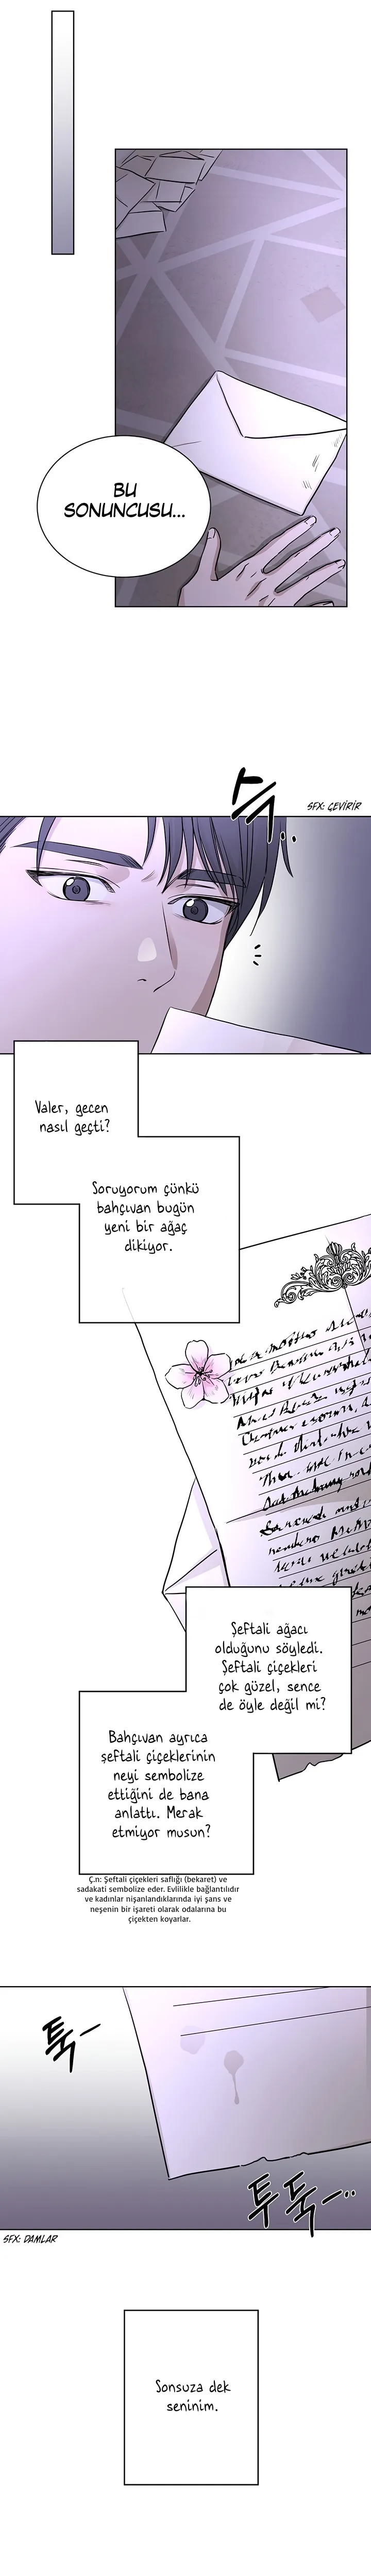 BU
SONUNCUSU...
슥...
SFX: ÇEVİRİR
Valer, gecen
nasıl geçti?
Soruyorum çünkü
bahçıvan bugün
yeni bir ağaç
dikiyor.
Şeftali ağacı
olduğunu söyledi.
Şeftali çiçekleri
çok güzel, sence
de öyle değil mi?
Bahçıvan ayrıca
şeftali çiçeklerinin
neyi sembolize
ettiğini de bana
anlattı. Merak
etmiyor musun?
Ç.n: Şeftali çiçekleri saflığı (bekaret) ve
sadakati sembolize eder. Evlilikle bağlantılıdır
ve kadınlar nişanlandıklarında iyi şans ve
neşenin bir işareti olarak odalarına bu
çiçekten koyarlar.
툭-
투툭-...
SFX: DAMLAR
Sonsuza dek
seninim.